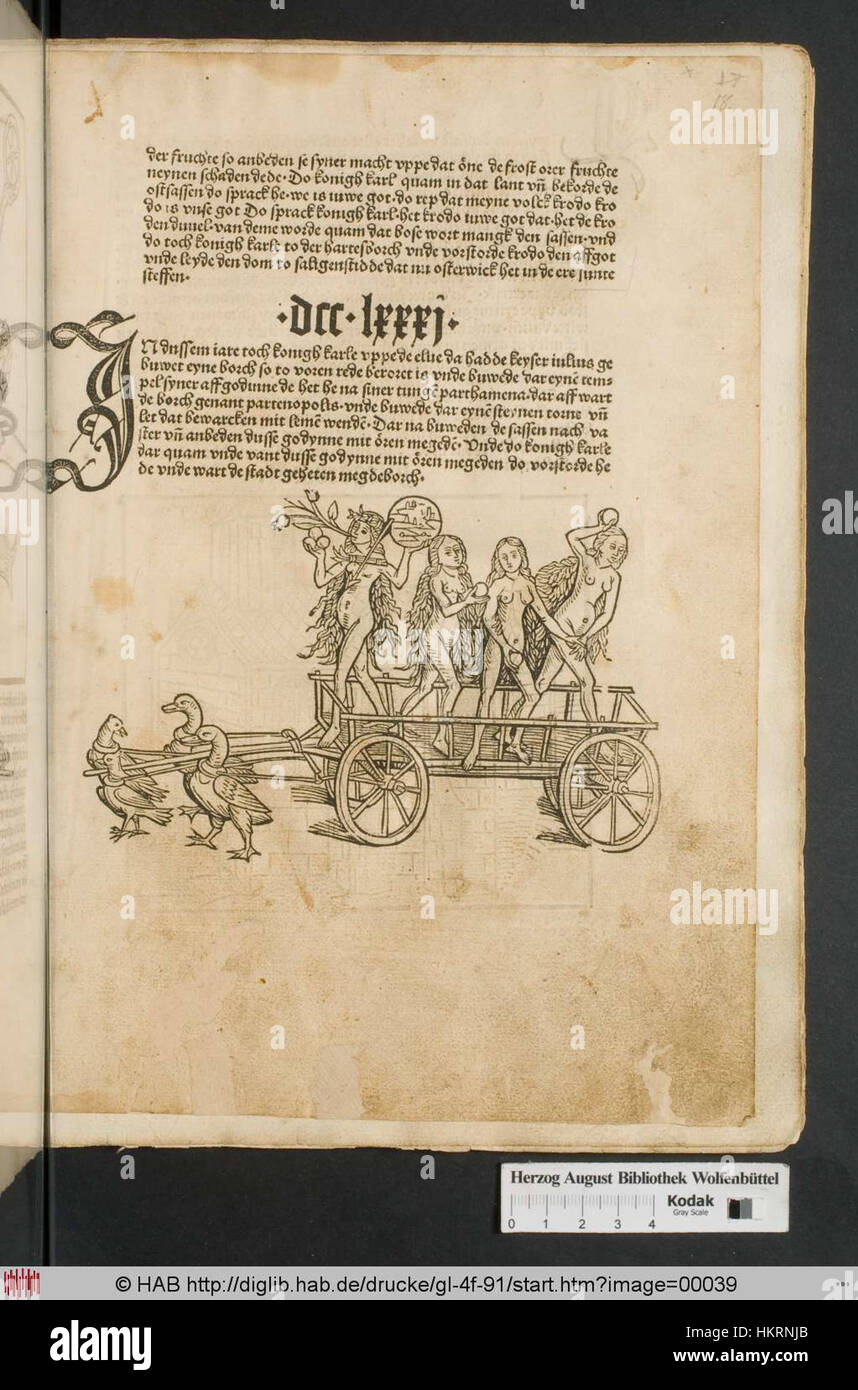 18
der fruchte so anbeden se syner macht vppe dat õne de frost orer fruchte
neynen schaden dede· Do konigh karl quam in dat lant vñ bekorde de
ostsassen do sprack he· we is iuwe got· do rep dat meyne volck krodo kro
do is vnse got Do sprack konigh karl· het krodo iuwe got dat· het de kro
den duuel· van deme worde quam dat bose wort mangk den sassen· vnd
do toch konigh karle to der hartesborch vnde vorstorde krodo den affgot
vnde leyde den dom to saligenstidde dat nu osterwick het in de ere sunte
steffen·
·dcc·lxxxj·
IN dussem iare toch konigh karle vppe de elue da hadde keyser iulius ge
buwet eyne borch so to voren rede beroret is vnde buwede dar eynē tem⸗
pel syner affgodinne de het he na siner tungē parthamena· dar aff wart
de borch genant partenopolis· vnde buwede dar eynē steynen torne vñ
let dat bewarcken mit lemē wendē· Dar na buweden de sassen nach va
ster vñ anbeden dusse godynne mit õren megedē· Vnde do konigh karle
dar quam vnde vant dusse godynne mit õren megeden do vorstorde he
de vnde wart de stadt geheten megdeborch·
Herzog August Bibliothek Wolfenbüttel
Kodak
Gray Scale
0 1 2 3 4
© HAB http://diglib.hab.de/drucke/gl-4f-91/start.htm?image=00039
alamy
Image ID: HKRNJB
www.alamy.com